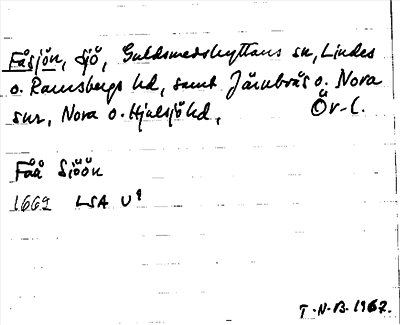 Fåsjön, sjö, Guldsmedshyttans sn, Lindes
o. Ramsbergs hd, samt Järnboås o. Nora
snr, Nora o. Hjulsjö hd, Ör-l.
Fåå Siöön
1669 LSA U¹
T.N.B. 1967.